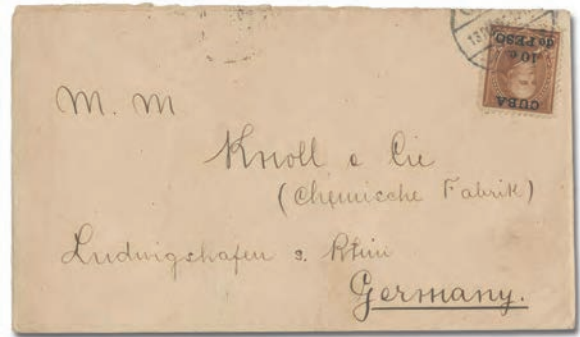 CUBA
10 c.
de PESO.
M. M
Knoll & Cie
(Chemische Fabrik)
Ludwigshafen a. Rhein
Germany.